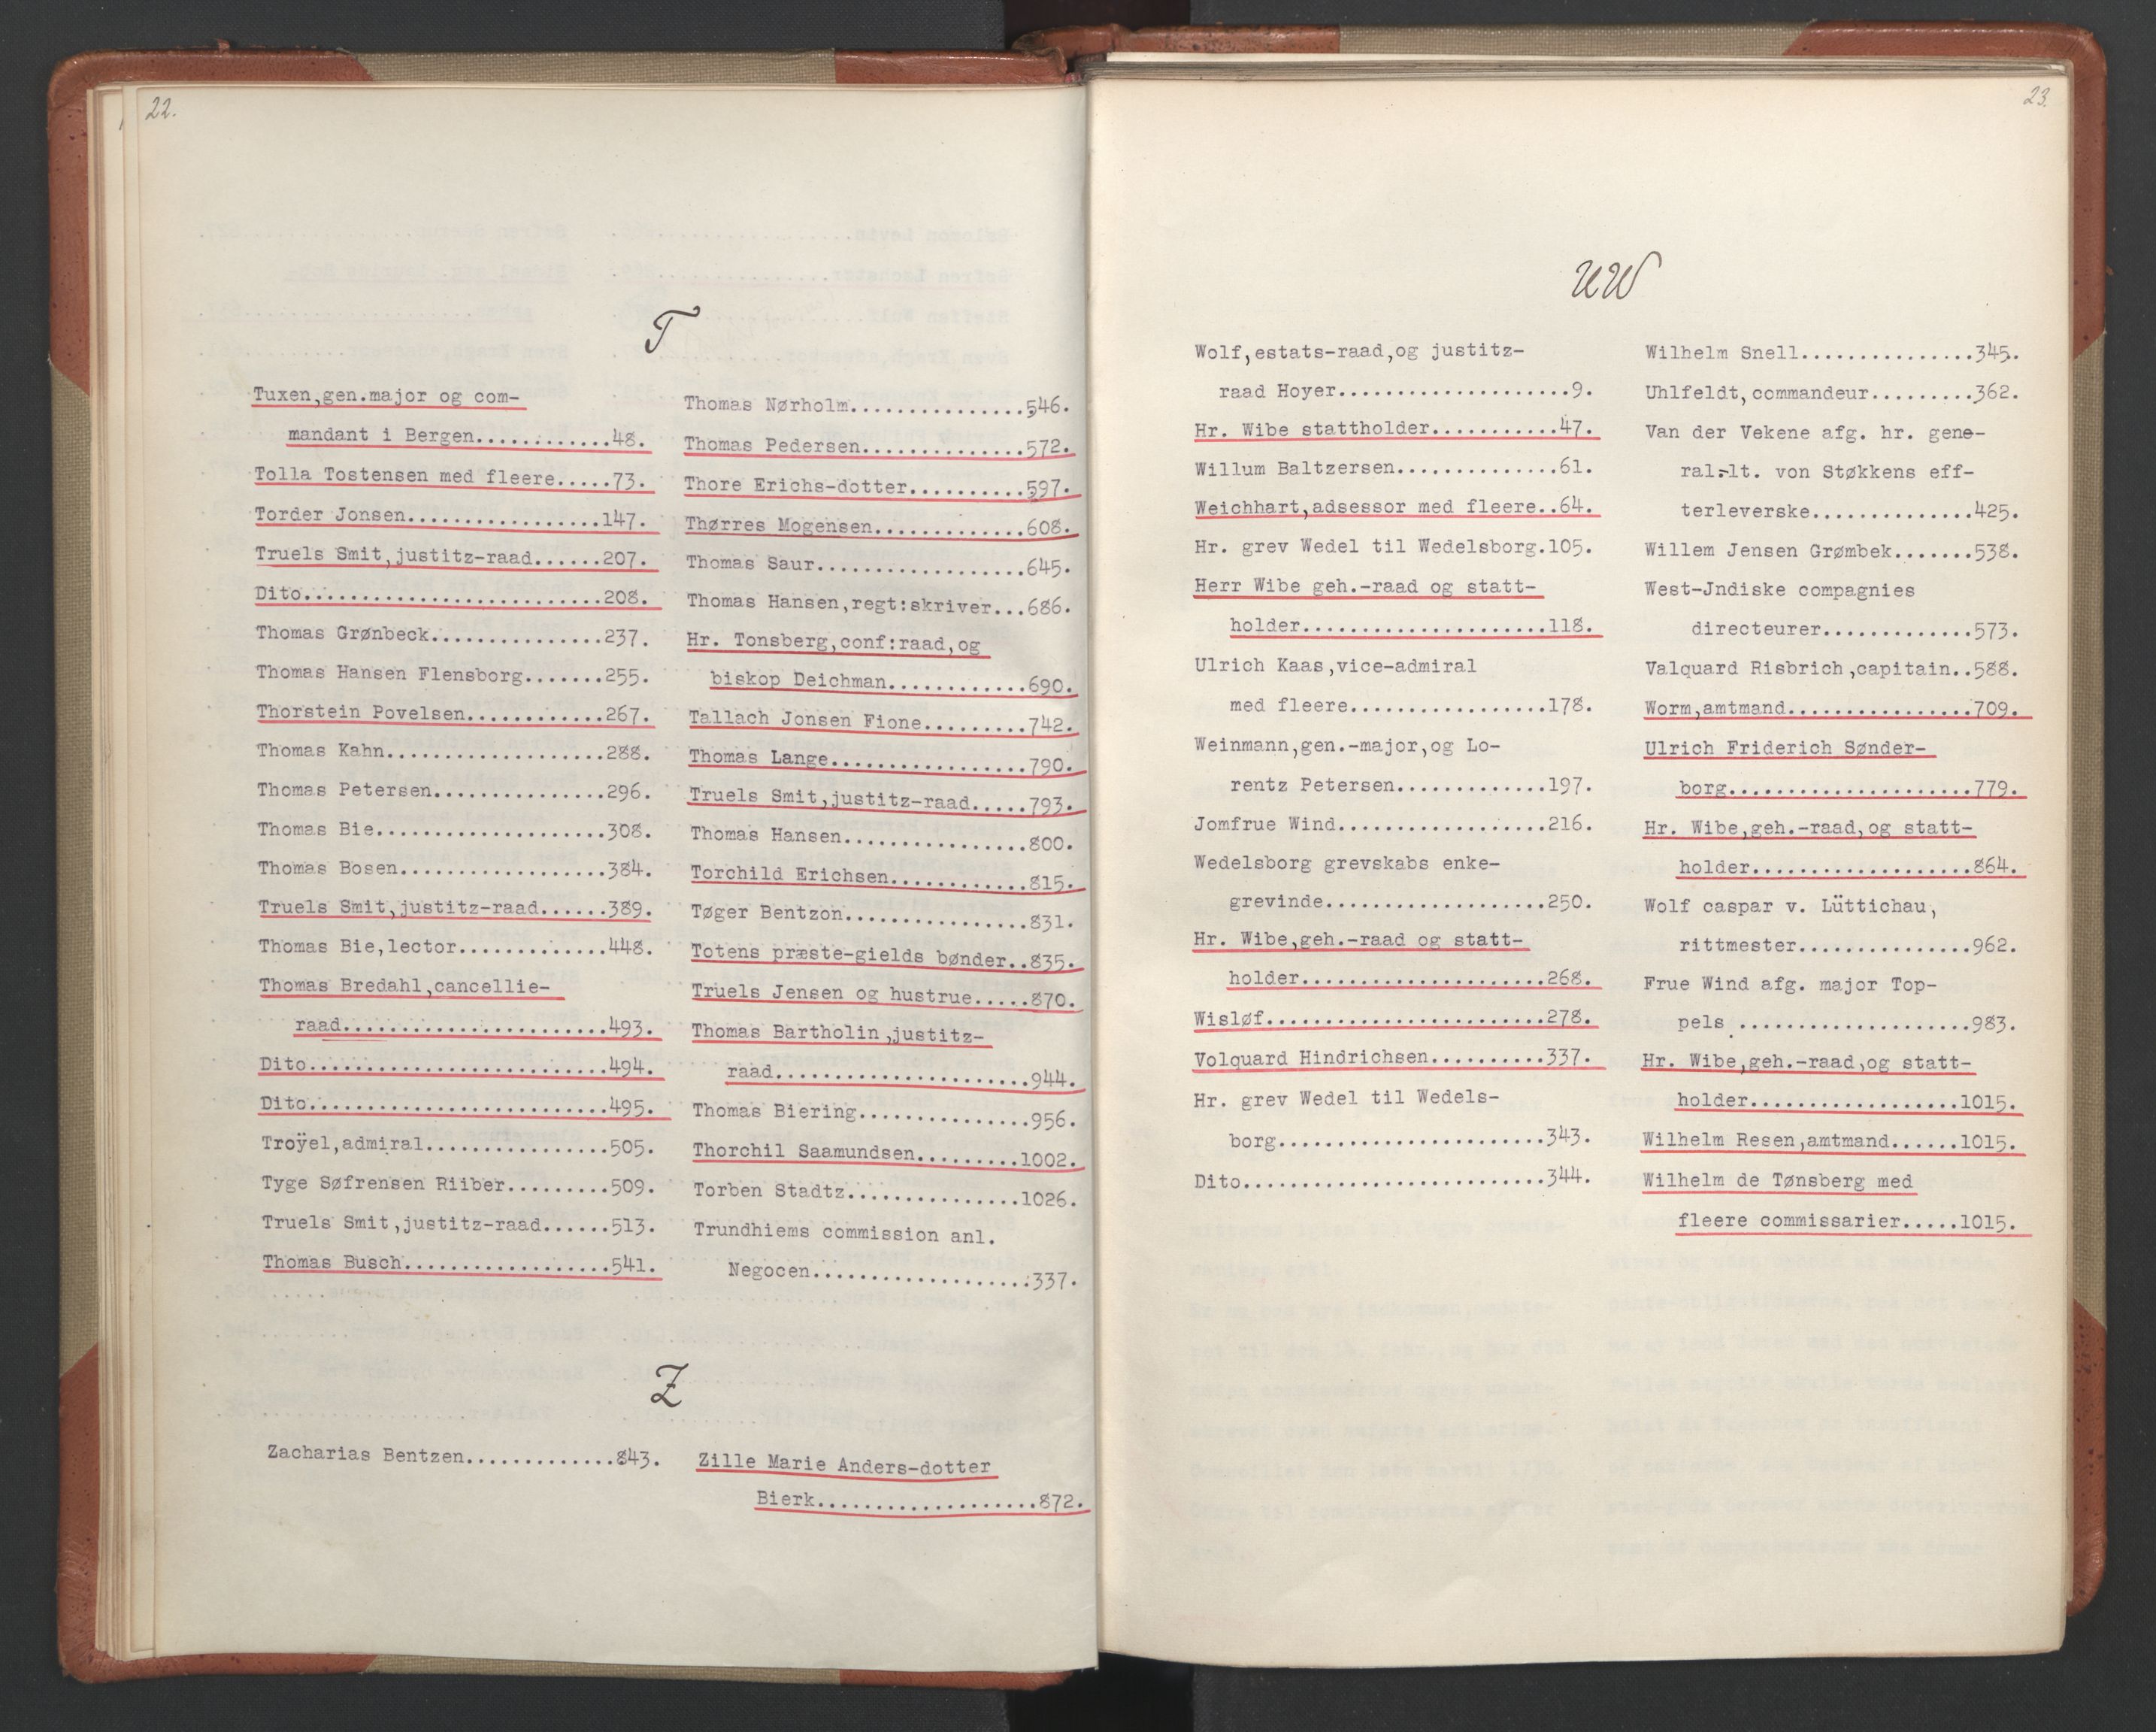 22.
T
Tuxen,gen.major og com-
mandant i Bergen............48.
Tolla Tostensen med fleere.....73.
Torder Jonsen.................147.
Truels Smit,justitz-raad......207.
Dito..........................208.
Thomas Grønbeck...............237.
Thomas Hansen Flensborg.......255.
Thorstein Povelsen............267.
Thomas Kahn...................288.
Thomas Petersen...............296.
Thomas Bie....................308.
Thomas Bosen..................384.
Truels Smit,justitz-raad......389.
Thomas Bie,lector.............448.
Thomas Bredahl,cancellie-
raad.......................493.
Dito..........................494.
Dito..........................495.
Troÿel,admiral................505.
Tyge Søfrensen Riiber.........509.
Truels Smit,justitz-raad......513.
Thomas Busch..................541.
Thomas Nørholm...............546.
Thomas Pedersen..............572.
Thore Erichs-dotter..........597.
Thørres Mogensen.............608.
Thomas Saur..................645.
Thomas Hansen,regt:skriver...686.
Hr. Tonsberg,conf:raad,og
biskop Deichman............690.
Tallach Jonsen Fione.........742.
Thomas Lange.................790.
Truels Smit,justitz-raad.....793.
Thomas Hansen................800.
Torchild Erichsen............815.
Tøger Bentzon................831.
Totens præste-gields bønder..835.
Truels Jensen og hustrue.....870.
Thomas Bartholin,justitz-
raad......................944.
Thomas Biering...............956.
Thorchil Saamundsen.........1002.
Torben Stadtz...............1026.
Trundhiems commission anl.
Negocen...................337.
Z
Zacharias Bentzen.............843.
Zille Marie Anders-dotter
Bierk...................872.
23.
UW
Wolf,estats-raad,og justitz-
raad Hoyer....................9.
Hr. Wibe stattholder...........47.
Willum Baltzersen..............61.
Weichhart,adsessor med fleere..64.
Hr. grev Wedel til Wedelsborg.105.
Herr Wibe geh.-raad og statt-
holder.....................118.
Ulrich Kaas,vice-admiral
med fleere.................178.
Weinmann,gen.-major,og Lo-
rentz Petersen.............197.
Jomfrue Wind..................216.
Wedelsborg grevskabs enke-
grevinde...................250.
Hr. Wibe,geh.-raad og statt-
holder.....................268.
Wisløf........................278.
Volquard Hindrichsen..........337.
Hr. grev Wedel til Wedels-
borg.......................343.
Dito..........................344.
Wilhelm Snell...............345.
Uhlfeldt,commandeur.........362.
Van der Vekene afg. hr. gene-
ral-lt. von Støkkens eff-
terleverske..............425.
Willem Jensen Grømbek.......538.
West-Jndiske compagnies
directeurer.............573.
Valquard Risbrich,capitain..588.
Worm,amtmand................709.
Ulrich Friderich Sønder-
borg.....................779.
Hr. Wibe,geh.-raad,og statt-
holder...................864.
Wolf caspar v. Lüttichau,
rittmester...............962.
Frue Wind afg. major Top-
pels ....................983.
Hr. Wibe,geh.-raad,og statt-
holder..................1015.
Wilhelm Resen,amtmand......1015.
Wilhelm de Tønsberg med
fleere commissarier.....1015.